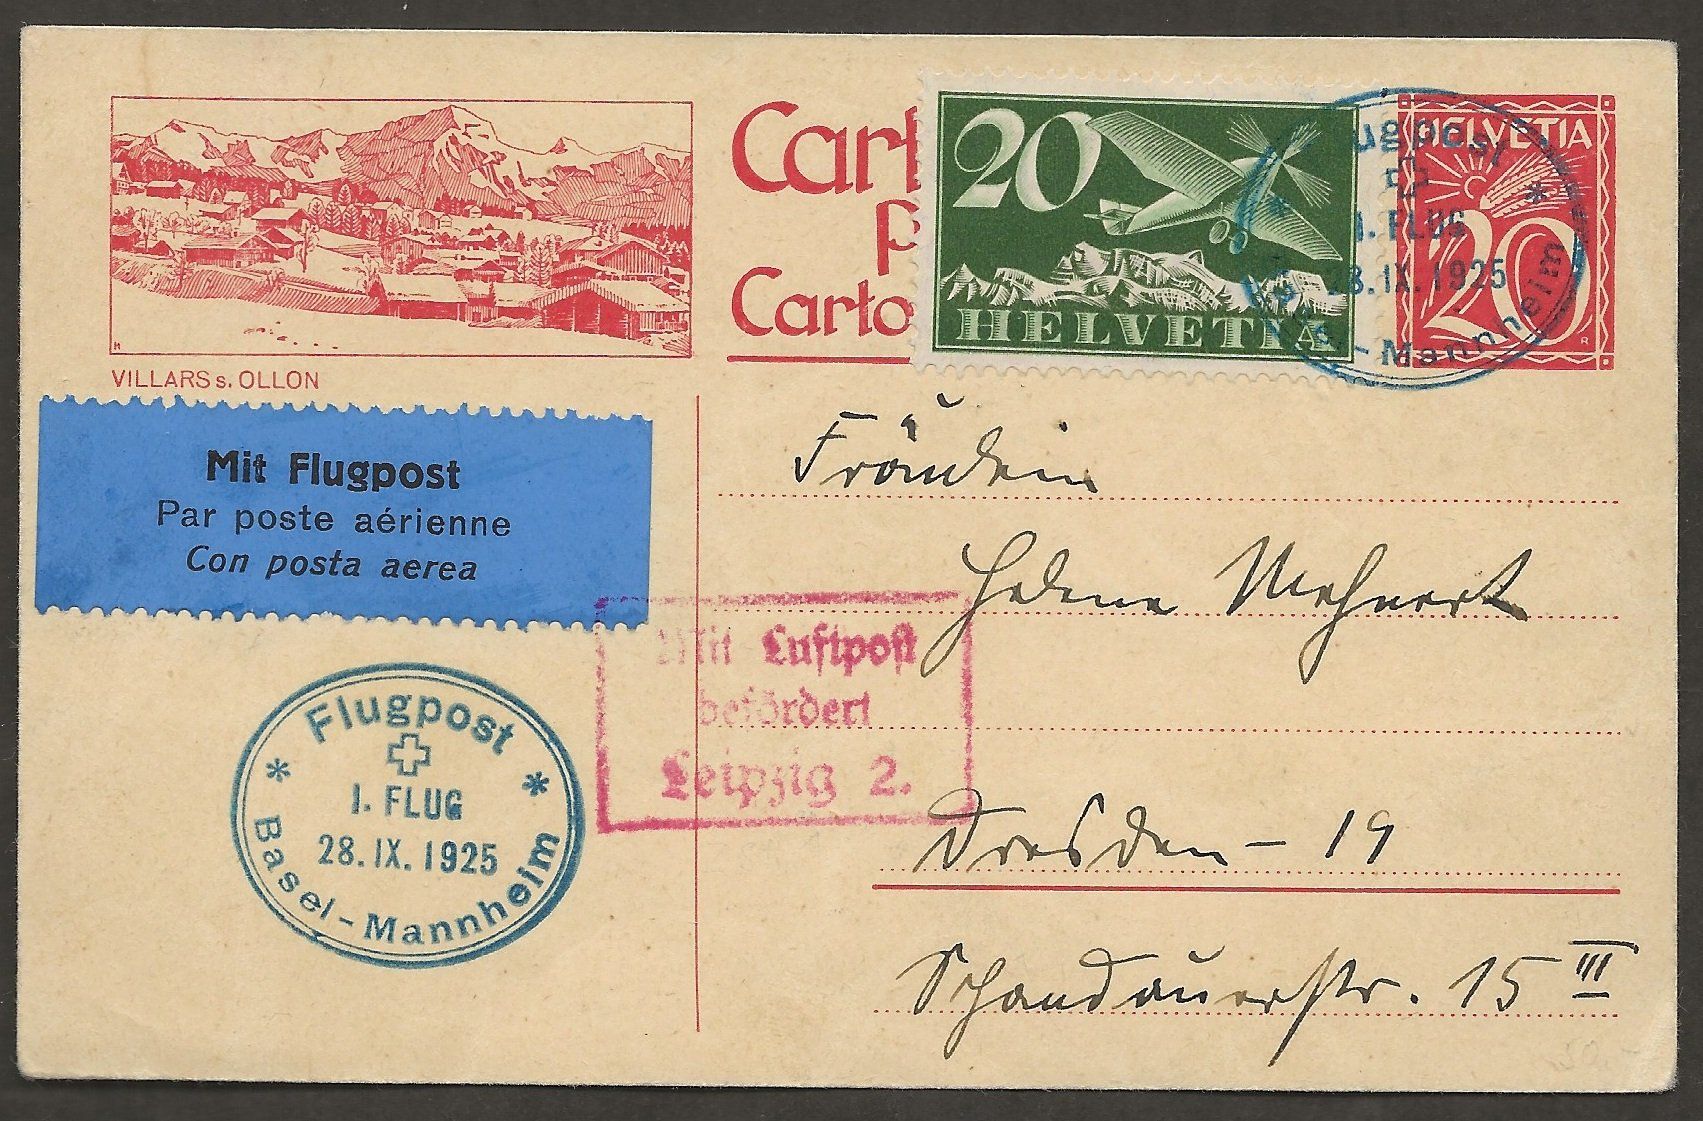 Cart
P
Carto
20
HELVETIA
HELVETIA
20
Flugpost
1. FLUG
28.IX.1925
Basel-Mannheim
VILLARS s. OLLON
Mit Flugpost
Par poste aérienne
Con posta aerea
Fräulein
Helene Mehnert
Mit Luftpost
befördert
Leipzig 2.
Flugpost
1. FLUG
28.IX.1925
Basel-Mannheim
Dresden - 19
Schandauerstr. 15 III